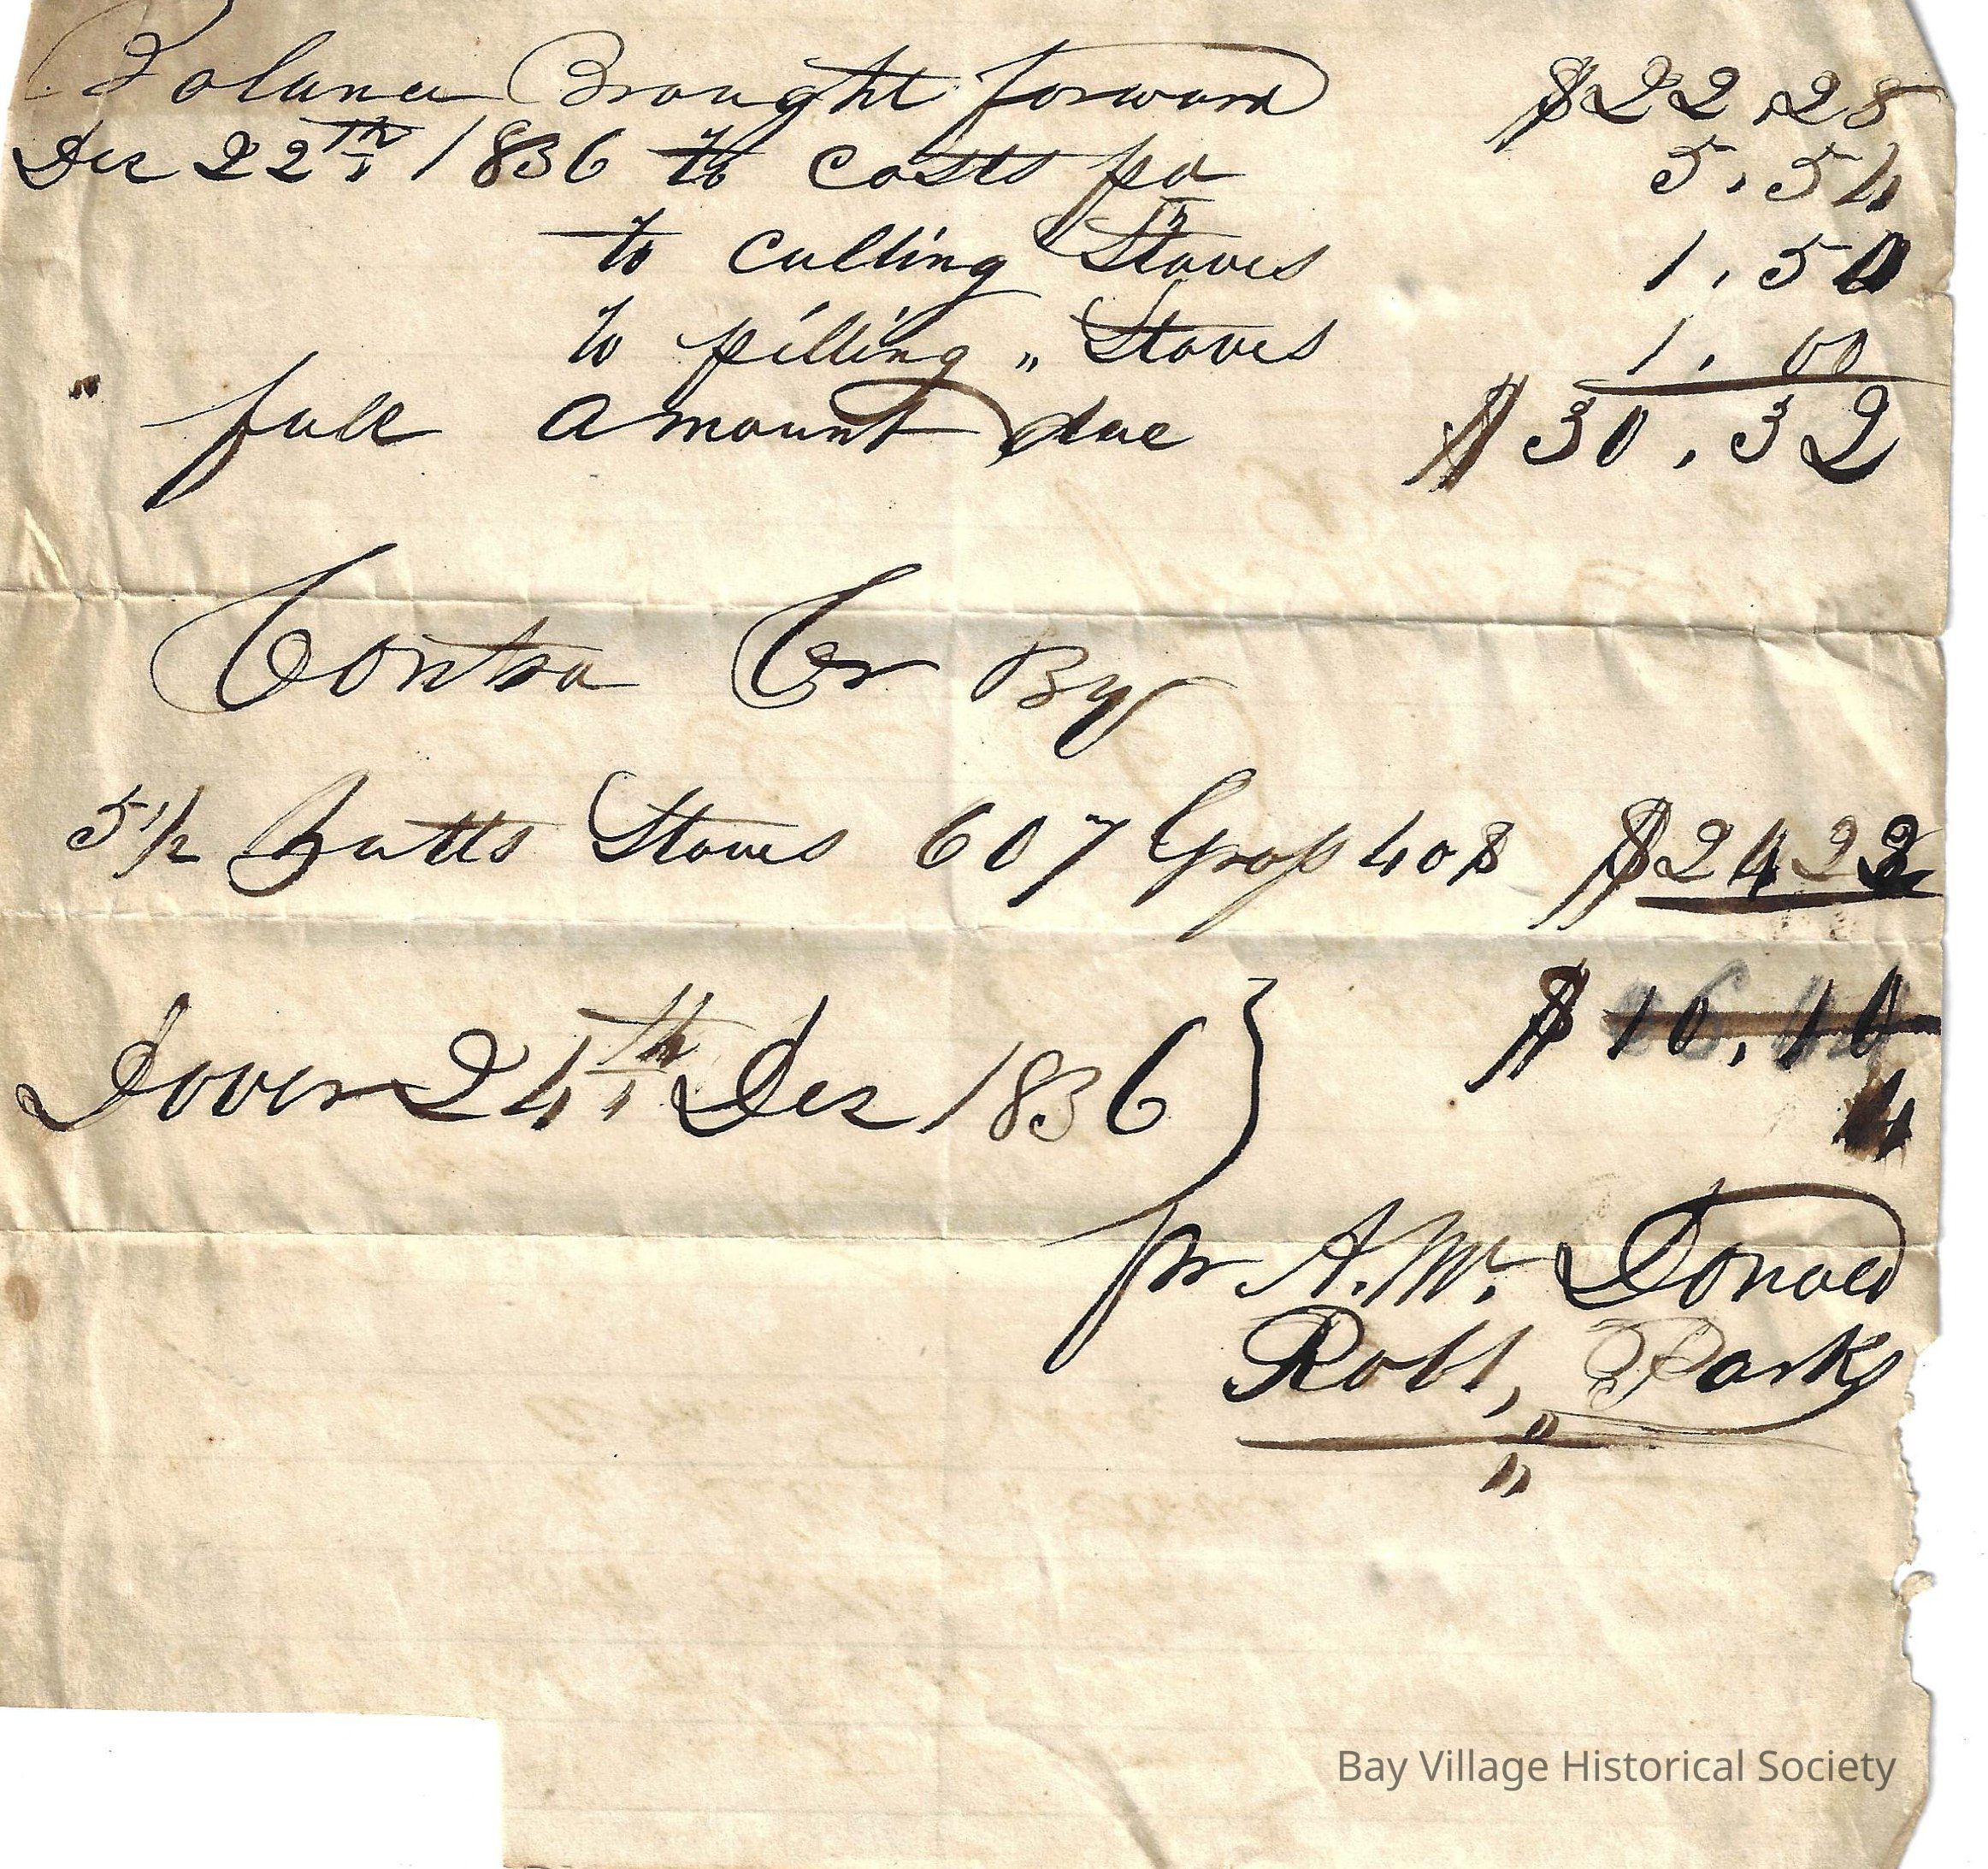 Balance Brought forward $22.28
Dec 22th 1836 to costs pd 5.54
to Culling Staves 1.50
to pilling " Staves 1.00
full amount due $30.32
Contra Cr By
51/2 Butts Staves 607 Gross 40$ $2422
$ 10.10
4
Dover 24th Dec 1836 }
pr A. Mc. Donald
Robt, Parks
Bay Village Historical Society